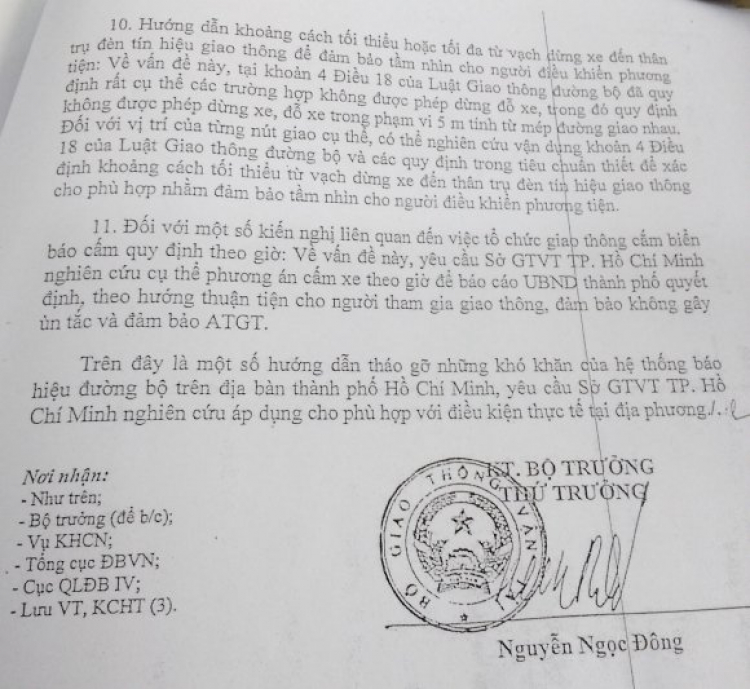 10. Hướng dẫn khoảng cách tối thiểu hoặc tối đa từ vạch dừng xe đến thân
trụ đèn tín hiệu giao thông để đảm bảo tầm nhìn cho người điều khiển phương
tiện: Về vấn đề này, tại khoản 4 Điều 18 của Luật Giao thông đường bộ đã quy
định rất cụ thể các trường hợp không được phép dừng đỗ xe, trong đó quy định
không được phép dừng xe, đỗ xe trong phạm vi 5 m tính từ mép đường giao nhau.
Đối với vị trí của từng nút giao cụ thể, có thể nghiên cứu vận dụng khoản 4 Điều
18 của Luật Giao thông đường bộ và các quy định trong tiêu chuẩn thiết để xác
định khoảng cách tối thiểu từ vạch dừng xe đến thân trụ đèn tín hiệu giao thông
cho phù hợp nhằm đảm bảo tầm nhìn cho người điều khiển phương tiện.
11. Đối với một số kiến nghị liên quan đến việc tổ chức giao thông cắm biển
báo cấm quy định theo giờ: Về vấn đề này, yêu cầu Sở GTVT TP. Hồ Chí Minh
nghiên cứu cụ thể phương án cấm xe theo giờ để báo cáo UBND thành phố quyết
định, theo hướng thuận tiện cho người tham gia giao thông, đảm bảo không gây
ùn tắc và đảm bảo ATGT.
Trên đây là một số hướng dẫn tháo gỡ những khó khăn của hệ thống báo
hiệu đường bộ trên địa bàn thành phố Hồ Chí Minh, yêu cầu Sở GTVT TP. Hồ
Chí Minh nghiên cứu áp dụng cho phù hợp với điều kiện thực tế tại địa phương./.
Nơi nhận:
- Như trên;
- Bộ trưởng (để b/c);
- Vụ KHCN;
- Tổng cục ĐBVN;
- Cục QLĐB IV;
- Lưu VT, KCHT (3).
KT. BỘ TRƯỞNG
THỨ TRƯỞNG
BỘ GIAO THÔNG VẬN TẢI
Nguyễn Ngọc Đông